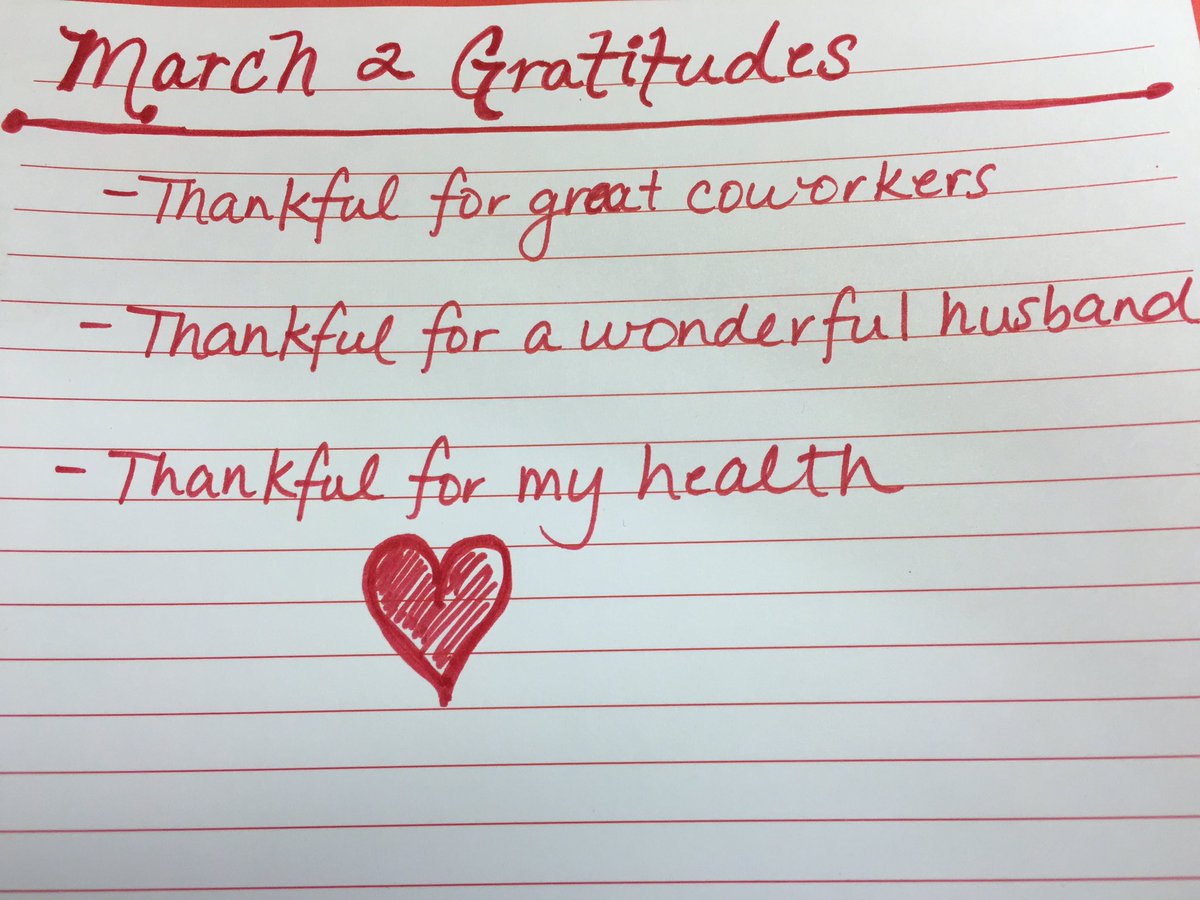 March 2 Gratitudes
- Thankful for great coworkers
- Thankful for a wonderful husband
- Thankful for my health